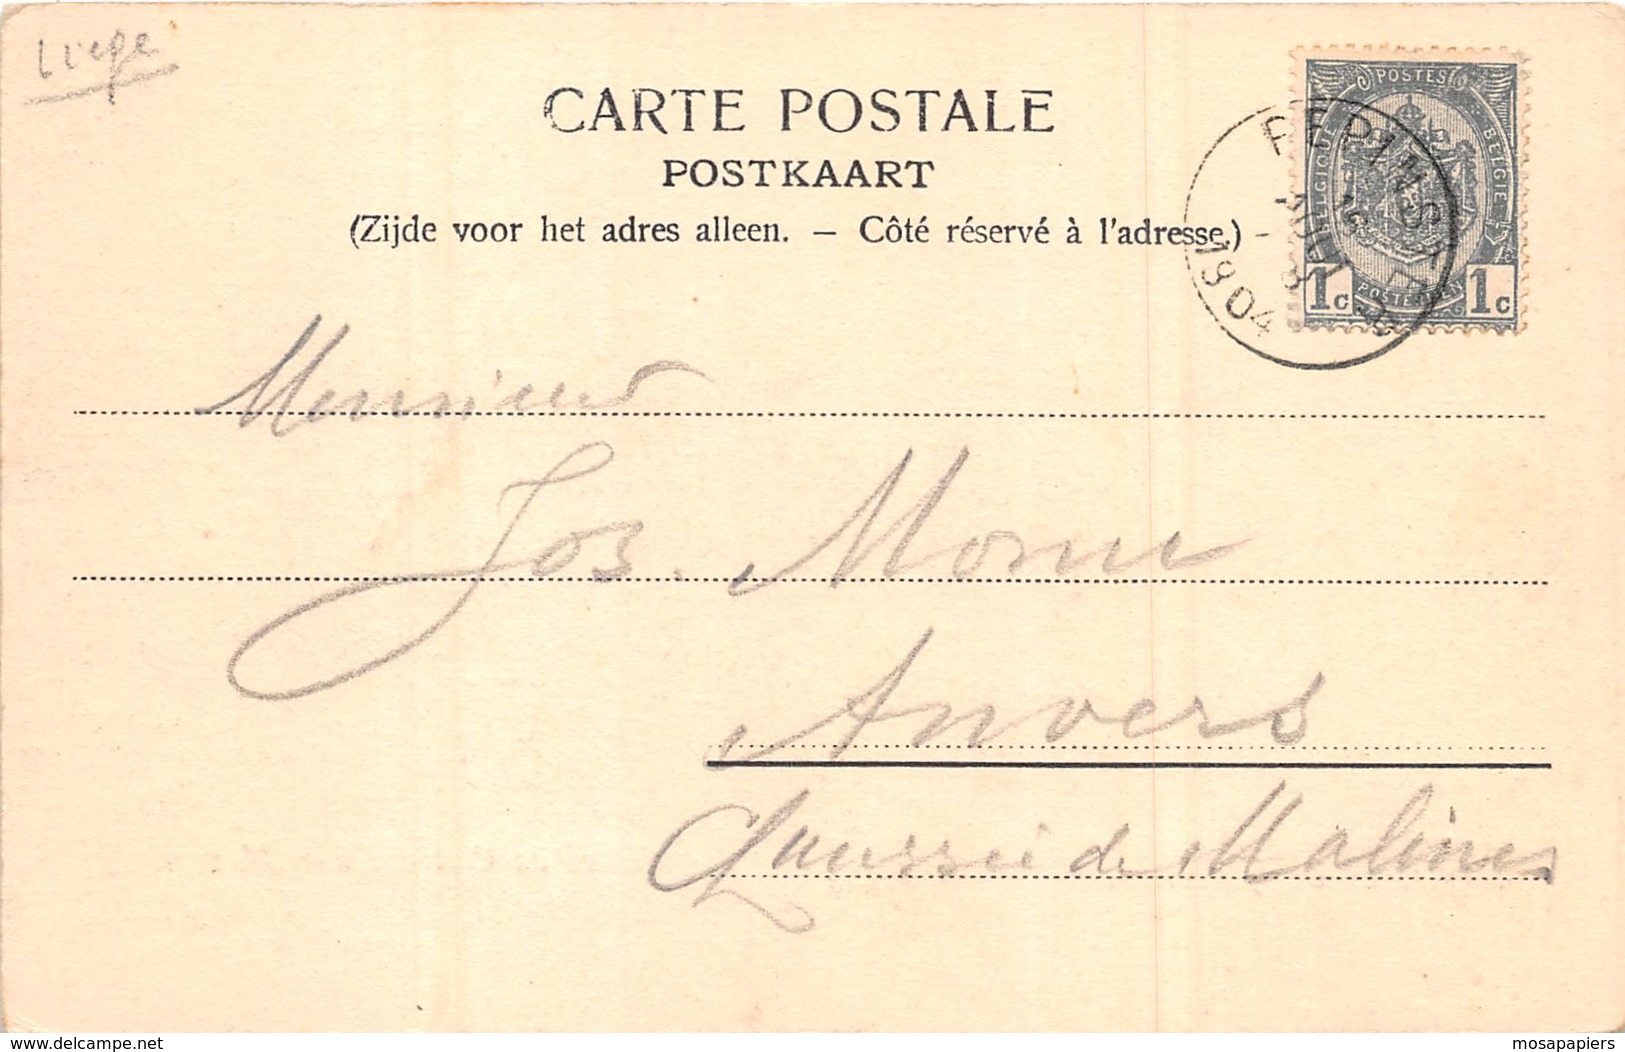 Liege
CARTE POSTALE
POSTKAART
(Zijde voor het adres alleen. – Côté réservé à l'adresse.)
POSTES
BELGIQUE BELGIE
POSTERIJEN
1c 1c
PEPINSTER
16
AOUT
8
1904
Monsieur
Jos.
Anvers
Chaussée de Malines
www.delcampe.net
mosapapiers